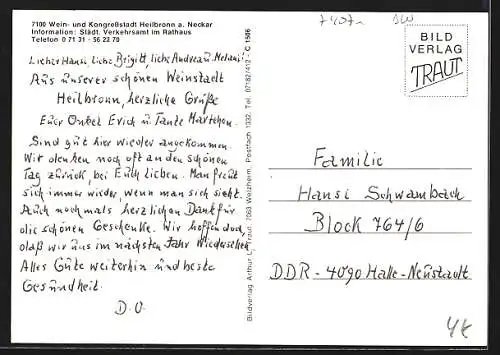 7100 Wein- und Kongreßstadt Heilbronn a. Neckar
Information: Städt. Verkehrsamt im Rathaus
Telefon 0 71 31 - 56 22 70
Lieber Hansi, liebe Brigitt, liebe Andrea u. Melanie!
Aus unserer schönen Weinstadt
Heilbronn, herzliche Grüße
Euer Onkel Erich u. Tante Martchen.
Sind gut hier wieder angekommen.
Wir denken noch oft an den schönen
Tag zurück, bei Euch Lieben. Man freut
sich immer wieder, wenn man sich sieht.
Auch nochmals herzlichen Dank für
die schönen Geschenke. Wir hoffen doch,
daß wir uns im nächsten Jahr wiedersehen
Alles Gute weiterhin und beste
Gesundheit.
D. O.
Bildverlag Arthur Traut, 7063 Welzheim, Postfach 1332, Tel. 07182/412 - C 1506
BILD
VERLAG
TRAUT
Familie
Hansi Schwambach
Block 764/6
DDR - 4090 Halle-Neustadt